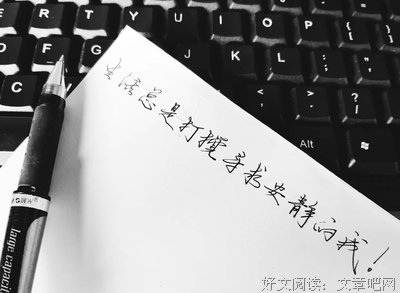 E R T Y U I O P
D F G
C
< >
, .
?
/
Alt
生活总是打搅寻求安静的我!
large capaci
好文阅读:文章吧网